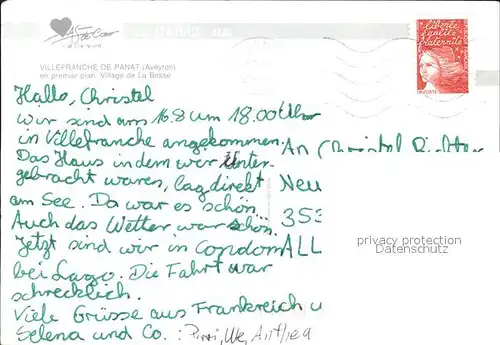 VILLEFRANCHE DE PANAT (Aveyron)
en premier plan: Village de La Besse
Liberté
égalité
fraternité
LA POSTE
Hallo, Christel
Wir sind am 16.8 um 18.00 Uhr
in Villefranche angekommen.
Das Haus in dem wir unter-
gebracht waren, lag direkt
am See. Da war es schön.
Auch das Wetter war schön.
Jetzt sind wir in Condom
bei Lago. Die Fahrt war
schrecklich.
Viele Grüsse aus Frankreich
Selena und Co.:
An Christel
Neu
353
ALL
privacy protection
Datenschutz